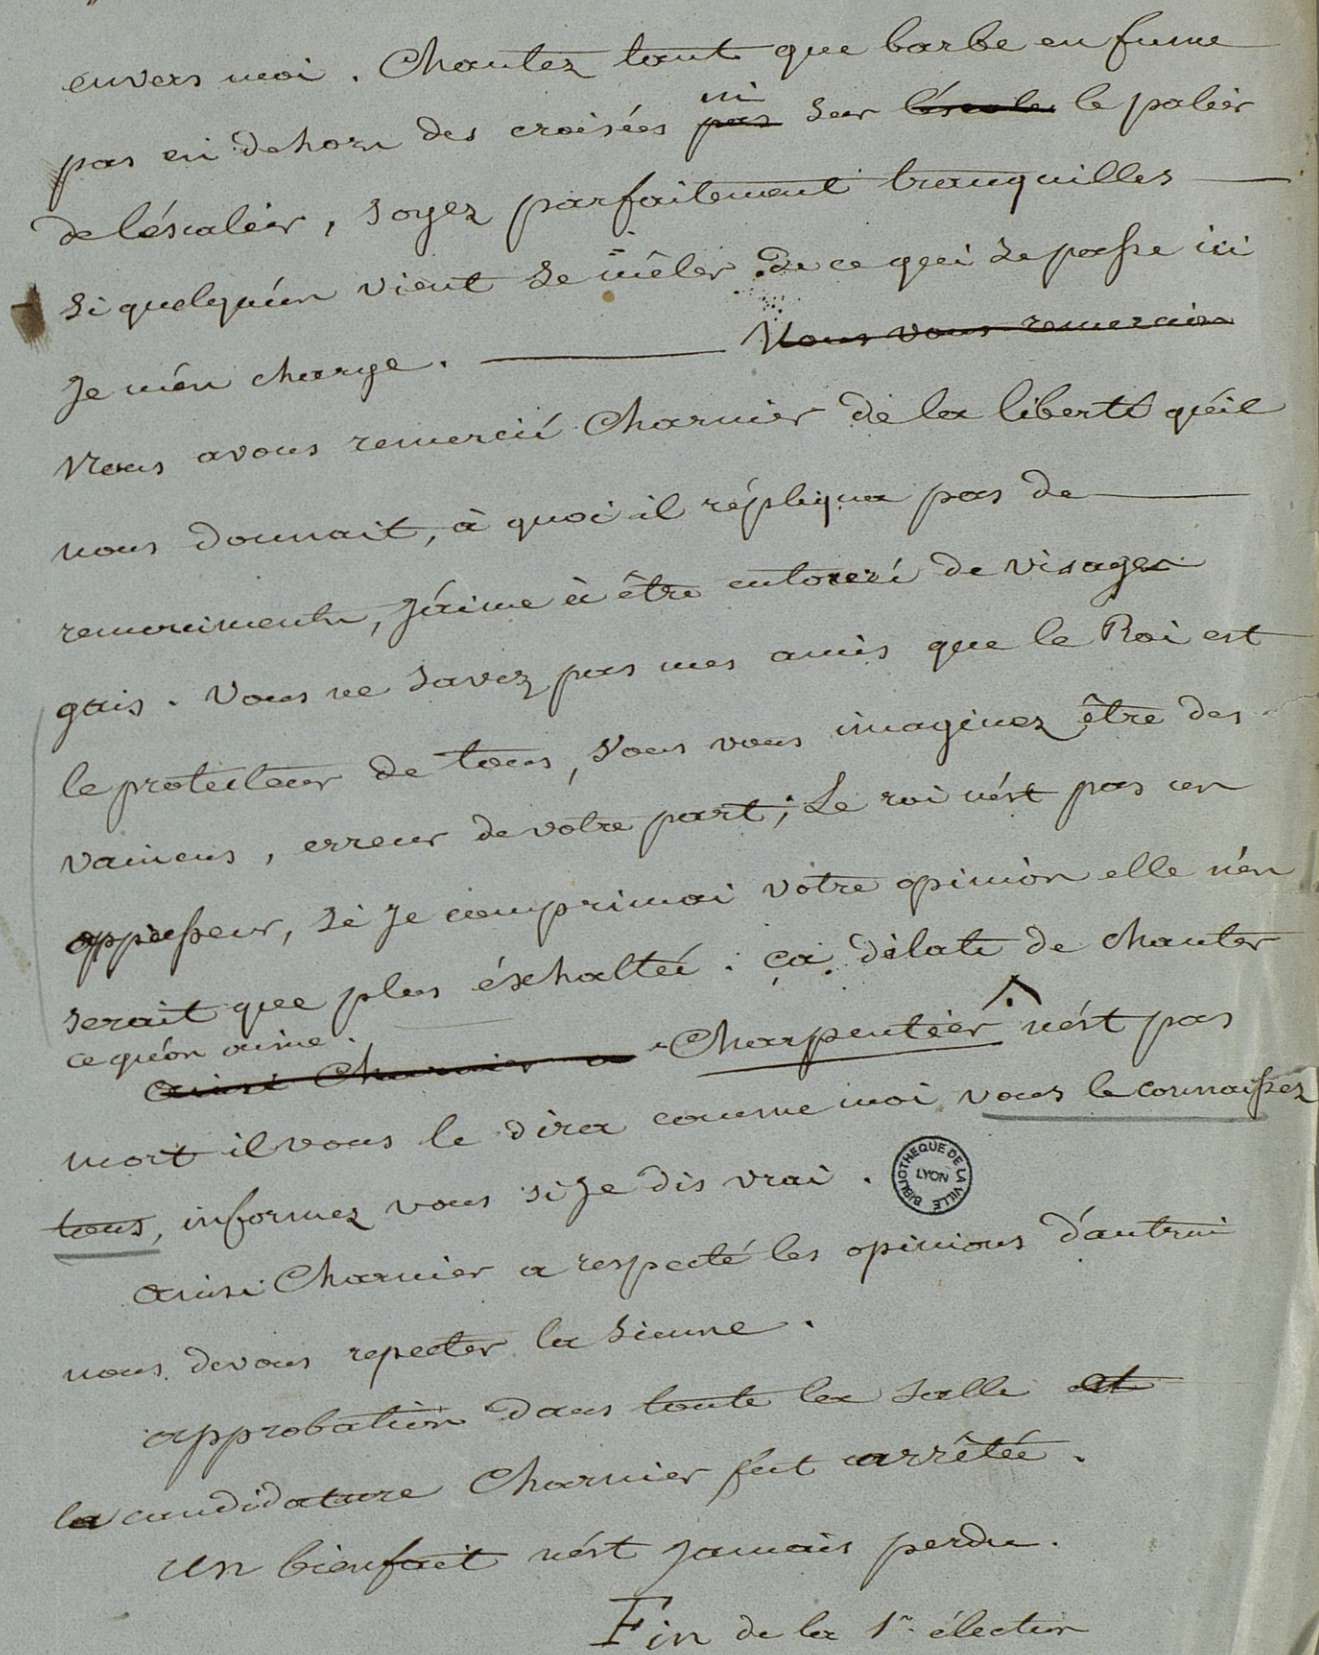 envers moi. Chantez tant que barbe en fume
pas en dehors des croisées pas ni sur l'éscale le palier
de l'éscalier, soyez parfaitement tranquilles
si quelqu'un vient se mêler de ce qui se passe ici
Je m'én charge. Nous vous remercion
Nous avons remercié Charnier de la liberté qu'il
nous donnait, à quoi il répliqua pas de
remerciments, J'aime à être entouré de visages
gais. Vous ne savez pas mes amis que le Roi est
le protecteur de tous, Vous vous imaginez être des
vaincus, erreur de votre part; Le roi n'ést pas un
oppresseur, si Je comprimai votre opinion elle n'en
serait que plus éxhaltée. ça dilate de chanter
ce qu'on aime.
ainsi Charnier a Charpentier n'ést pas
mort il vous le dira comme moi vous le connaissez
tous, informez vous si Je dis vrai.
BIBLIOTHEQUE DE LA VILLE LYON
ainsi Charnier a respecté les opinions d'autrui
nous devons repecter la sienne.
approbation dans toute la salle et
la candidature Charnier fut arrêtée.
un bienfait n'ést jamais perdu.
Fin de la 1re élection